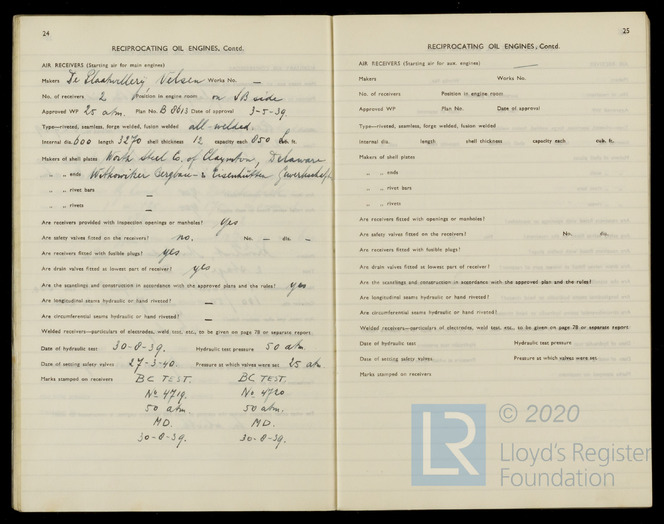 24
RECIPROCATING OIL ENGINES, Contd.
AIR RECEIVERS (Starting air for main engines)
Makers De Plaatwellerij Velsen Works No. —
No. of receivers 2 Position in engine room on SB side
Approved WP 25 atm. Plan No. B 8613 Date of approval 3-5-39
Type—riveted, seamless, forge welded, fusion welded all welded.
Internal dia. 600 length 3270 shell thickness 12 capacity each 850 L. cub. ft.
Makers of shell plates Worth Steel Co. of Claymont, Delaware
„ „ ends Witkowitzer Bergbau- & Eisenhütten Gewerkschaft
„ „ rivet bars —
„ „ rivets —
Are receivers provided with inspection openings or manholes? yes
Are safety valves fitted on the receivers? no. No. – dia. –
Are receivers fitted with fusible plugs? yes
Are drain valves fitted at lowest part of receiver? yes
Are the scantlings and construction in accordance with the approved plans and the rules? yes
Are longitudinal seams hydraulic or hand riveted? —
Are circumferential seams hydraulic or hand riveted? —
Welded receivers—particulars of electrodes, weld test, etc., to be given on page 78 or separate report
Date of hydraulic test 30-8-39. Hydraulic test pressure 50 atm.
Date of setting safety valves 27-3-40. Pressure at which valves were set 25 atm.
Marks stamped on receivers BC TEST. BC TEST.
No 4719. No 4720
50 atm. 50 atm.
MD. MD.
30-8-39. 30-8-39.
25
RECIPROCATING OIL ENGINES, Contd.
AIR RECEIVERS (Starting air for aux. engines) —
Makers Works No.
No. of receivers Position in engine room
Approved WP Plan No. Date of approval
Type—riveted, seamless, forge welded, fusion welded
Internal dia. length shell thickness capacity each cub. ft.
Makers of shell plates
„ „ ends
„ „ rivet bars
„ „ rivets
Are receivers fitted with openings or manholes?
Are safety valves fitted on the receivers? No. dia.
Are receivers fitted with fusible plugs?
Are drain valves fitted at lowest part of receiver?
Are the scantlings and construction in accordance with the approved plan and the rules?
Are longitudinal seams hydraulic or hand riveted?
Are circumferential seams hydraulic or hand riveted?
Welded receivers—particulars of electrodes, weld test, etc., to be given on page 78 or separate report
Date of hydraulic test Hydraulic test pressure
Date of setting safety valves Pressure at which valves were set
Marks stamped on receivers
LR
© 2020
Lloyd's Register
Foundation